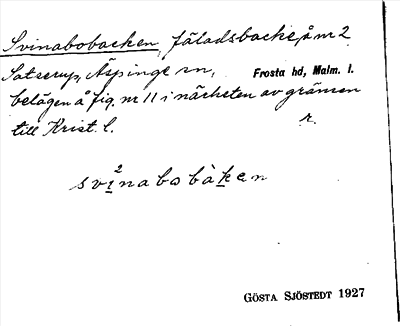 Svinabobacken, fäladsbacke, å nr 2
Satserup, Äspinge sn, Frosta hd, Malm. l.
belägen å fig. nr 11 i närheten av gränsen
till Krist. l. r.
svinabobàken
2
GÖSTA SJÖSTEDT 1927